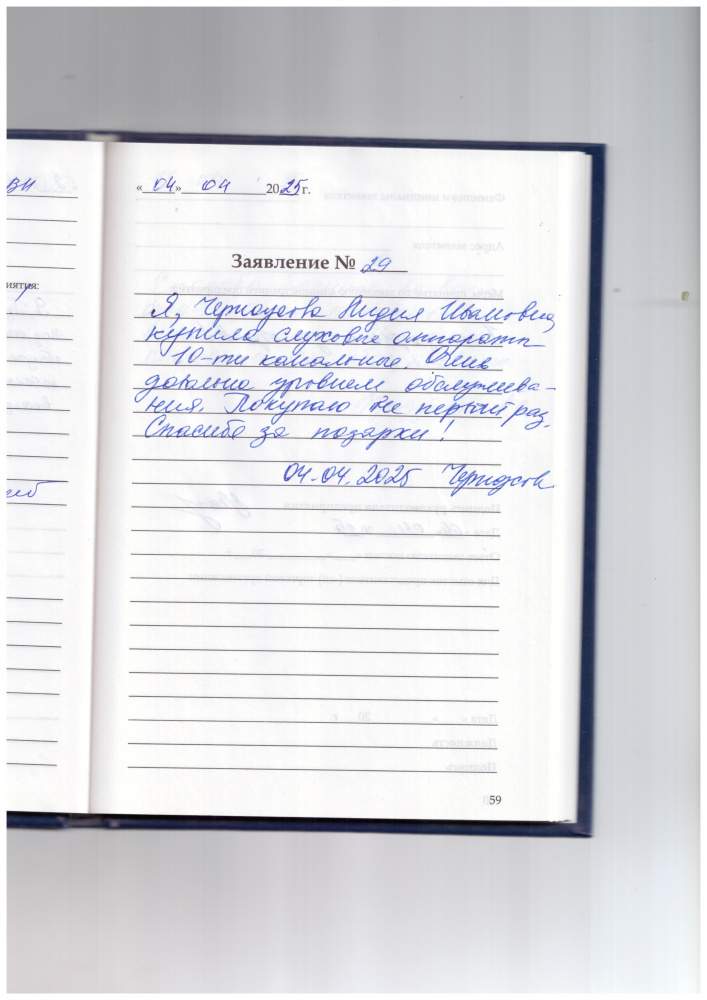 «04» 04 2025 г.
Заявление № 29
Я, Черноусова Лидия Ивановна,
купила слуховые аппараты
10-ти канальные. Очень
довольна уровнем обслужива-
ния. Покупаю не первый раз.
Спасибо за подарки!
04.04.2025
ви
иятия:
59